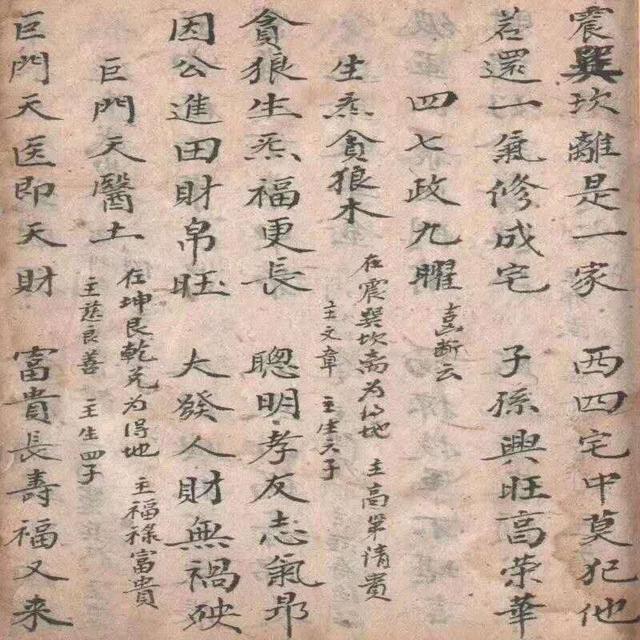 震巽坎離是一家 西四宅中莫犯他
若還一氣修成宅 子孫興旺高榮華
四七政九曜 玄断云
生炁貪狼木
在震巽坎离为得地 主高軍清貴
主文章 主生五子
貪狼生炁福更長 聰明孝友志氣昂
因公進田財帛旺 大發人財無禍殃
巨門天醫土
在坤艮乾兑为得地 主福祿富貴
主慈良善 主生四子
巨門天医即天財 富貴長壽福又来